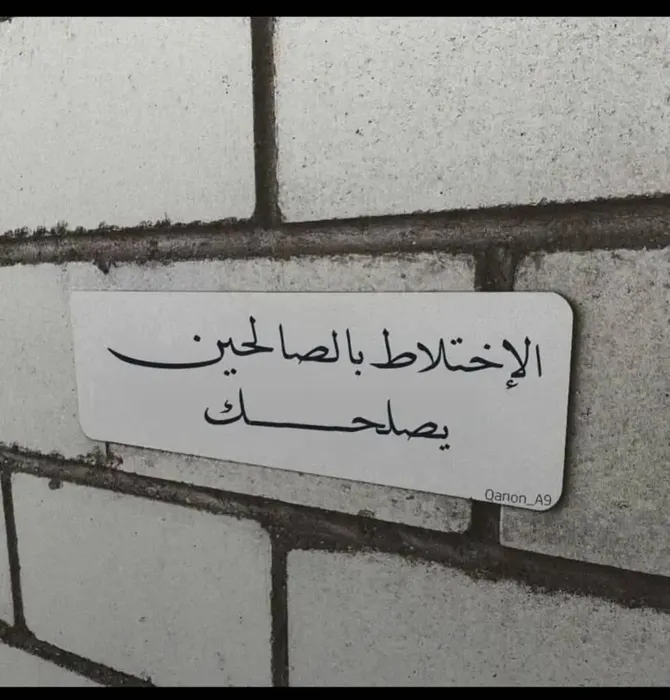 الإختلاط بالصالحين
يصلحـــك
Qarion_A9